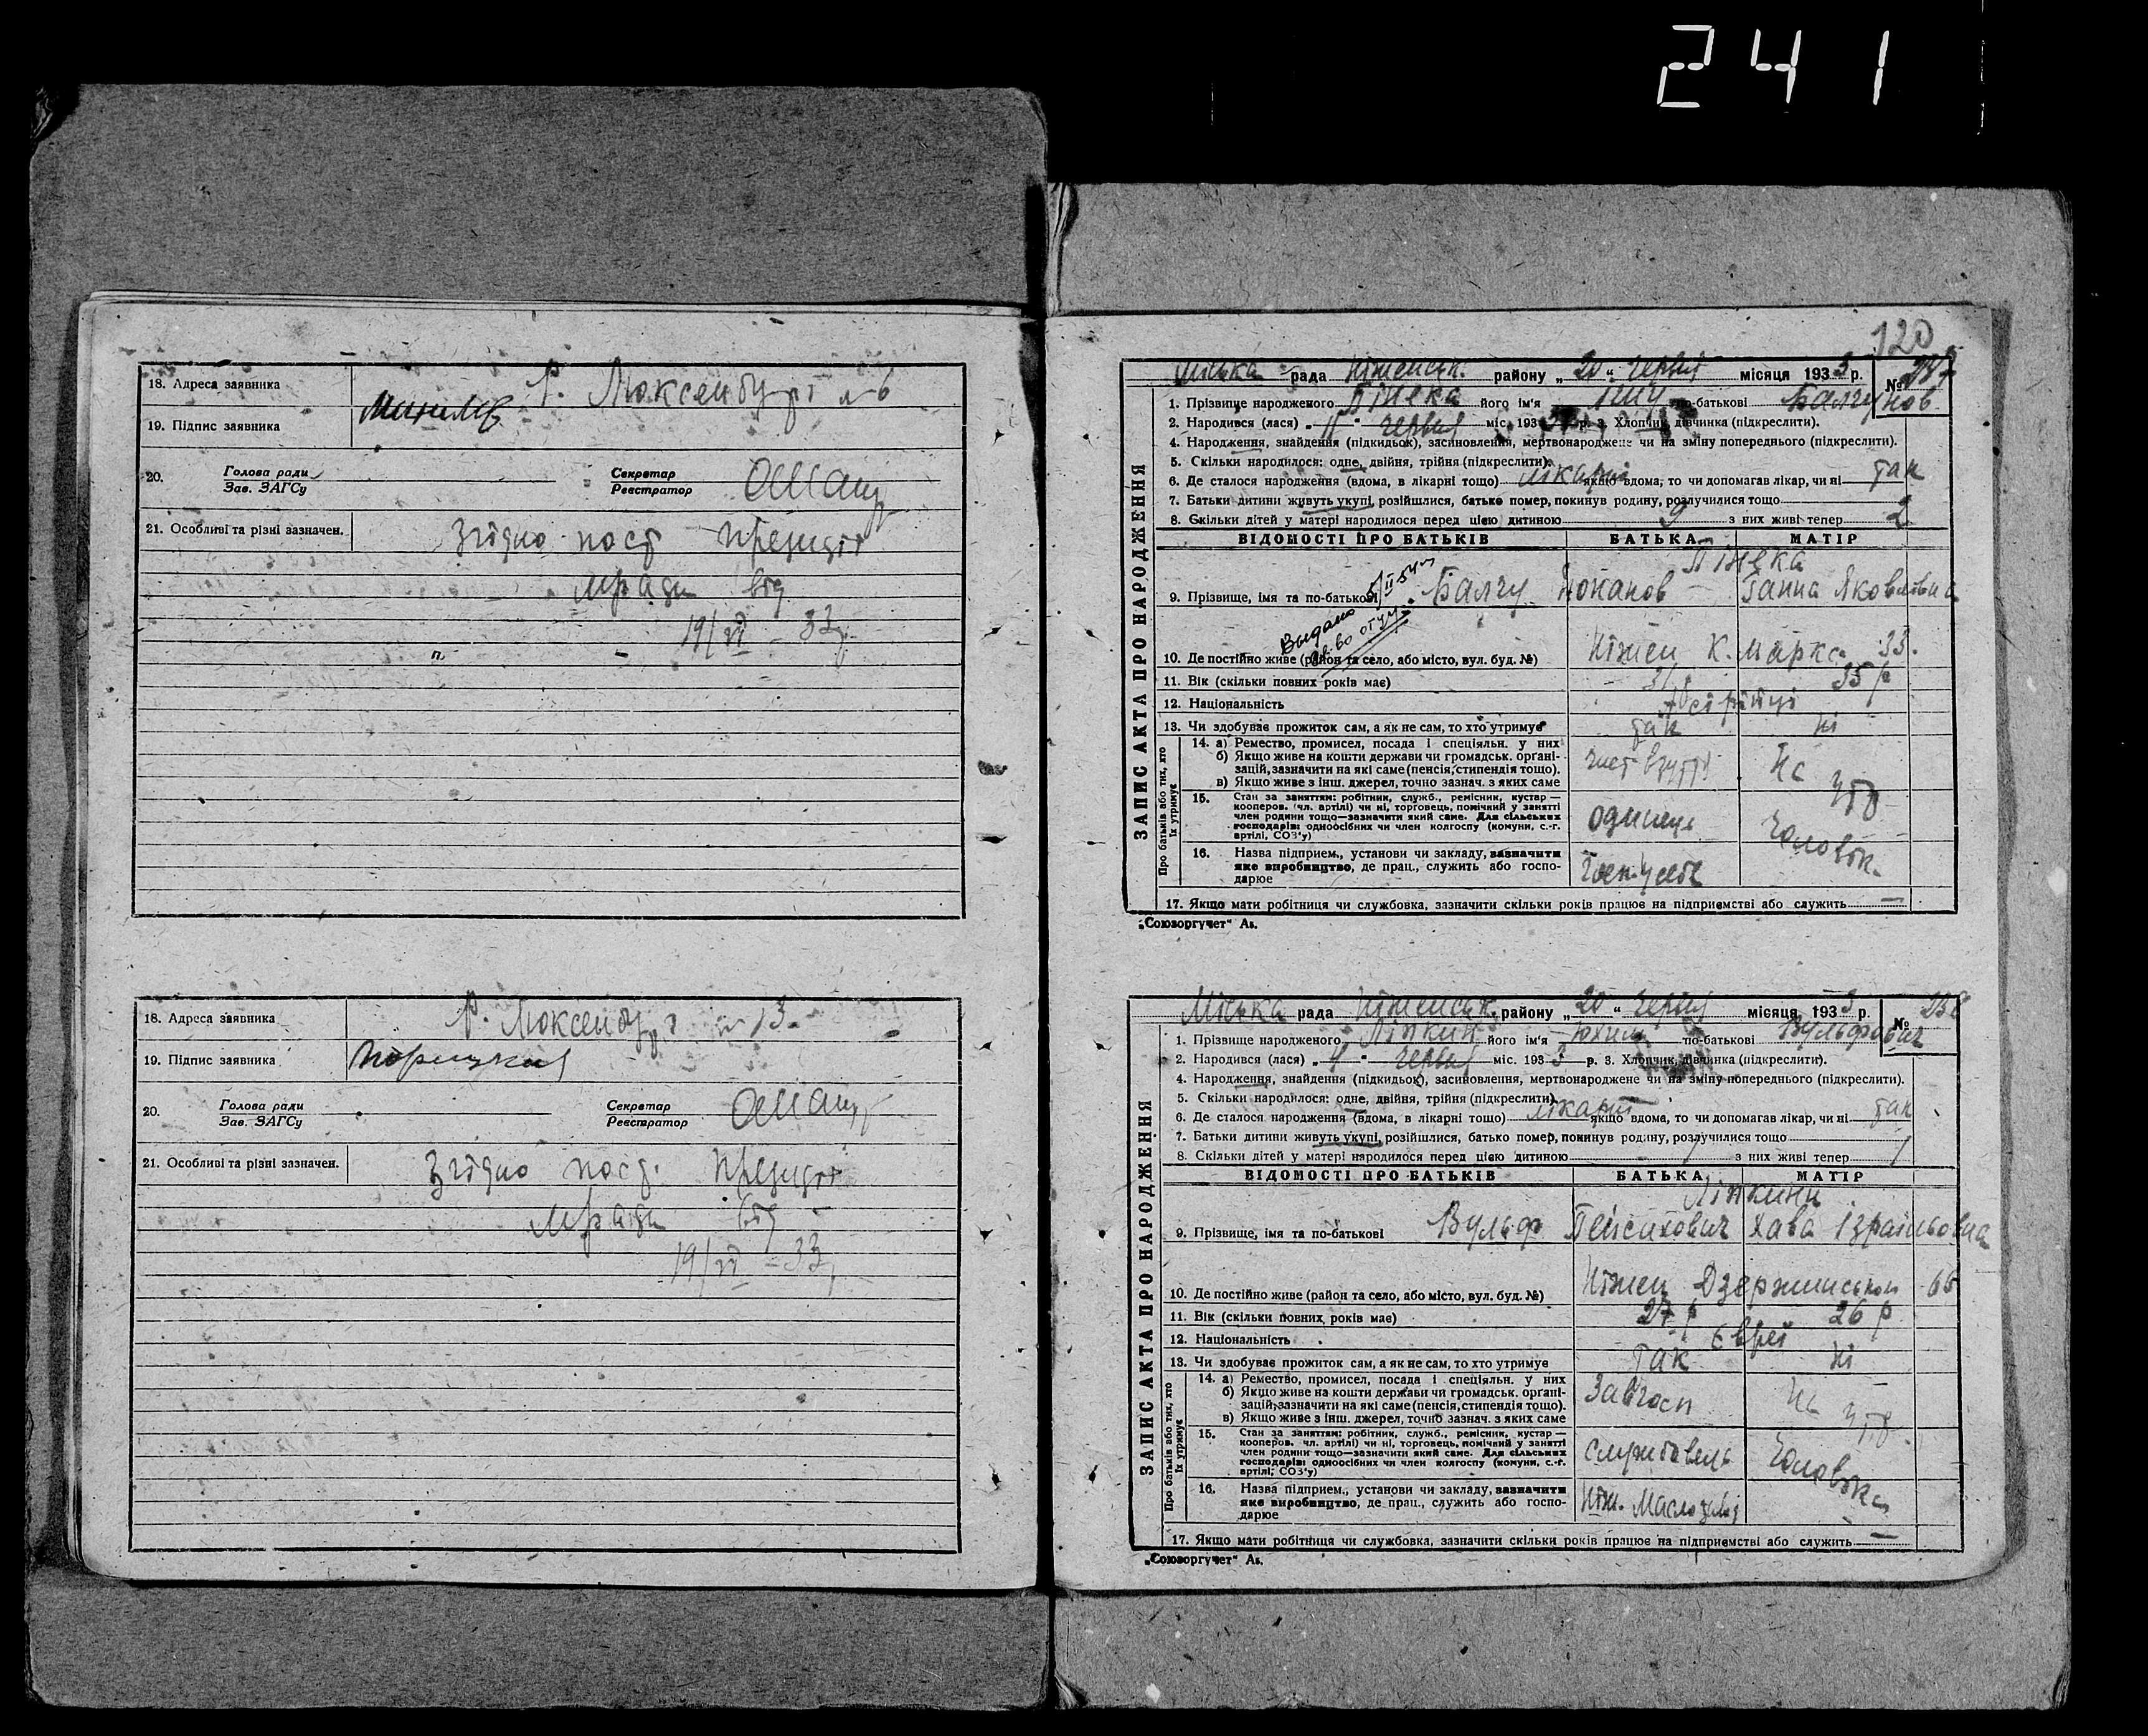 241
18. Адреса заявника
Р. Люксембург
19. Підпис заявника
20. Голова ради
Зав. ЗАГСу
Секретар
Реєстратор
21. Особливі та різні зазначен.
Згідно пост президії
мради від
19/VI - 33 р.
18. Адреса заявника
Р. Люксембург 13.
19. Підпис заявника
20. Голова ради
Зав. ЗАГСу
Секретар
Реєстратор
21. Особливі та різні зазначен.
Згідно пост. президії
мради від
19/VI - 33 р.
120
ЗАПИС АКТА ПРО НАРОДЖЕННЯ
Міська рада Ніженськ. району „ 20 “ червня місяця 1933 р. №
1. Прізвище народженого його ім'я по-батькові Балчунов
2. Народився (лася) „ 11 “ червня міс. 193 р. 3. Хлопчик, дівчинка (підкреслити).
4. Народження, знайдення (підкидьок), засиновлення, мертвонароджене чи на зміну попереднього (підкреслити).
5. Скільки народилося: одне, двійня, трійня (підкреслити).
6. Де сталося народження (вдома, в лікарні тощо) лікарні якщо вдома, то чи допомагав лікар, чи ні так
7. Батьки дитини живуть укупі, розійшлися, батько помер, покинув родину, розлучилися тощо
8. Скільки дітей у матері народилося перед цією дитиною 9 з них живі тепер 2
ВІДОМОСТІ ПРО БАТЬКІВ БАТЬКА МАТІР
9. Прізвище, імя та по-батькові Балчу Ганна Яковлівна
Выдано
св-во
10. Де постійно живе (район та село, або місто, вул. буд. №) Ніжен К. Маркса 33.
11. Вік (скільки повних років має) 35 р
12. Національність
13. Чи здобуває прожиток сам, а як не сам, то хто утримує так ні
Про батьків або тих, хто їх утримує
14. а) Ремество, промисел, посада і спеціяльн. у них
б) Якщо живе на кошти держави чи громадськ. органі-
зацій, зазначити на які саме (пенсія, стипендія тощо).
в) Якщо живе з інш. джерел, точно зазнач. з яких саме
чист взуття На утр
15. Стан за заняттям: робітник, служб., ремісник, кустар —
кооперов. (чл. артілі) чи ні, торговець, помічний у занятті
член родини тощо—зазначити який саме. Для сільських
господарів: одноосібних чи член колгоспу (комуни, с.-г.
артілі, СОЗ'у)
одинець чоловік.
16. Назва підприєм., установи чи закладу, зазначити
яке виробництво, де прац., служить або госпо-
дарює
17. Якщо мати робітниця чи службовка, зазначити скільки років працює на підприємстві або служить —
„Союзоргучет“ Ав.
ЗАПИС АКТА ПРО НАРОДЖЕННЯ
Міська рада Ніженськ. району „ 20 “ червня місяця 1933 р. № 238
1. Прізвище народженого Ліпкин його ім'я по-батькові Вульфович
2. Народився (лася) „ “ червня міс. 1933 р. 3. Хлопчик, дівчинка (підкреслити).
4. Народження, знайдення (підкидьок), засиновлення, мертвонароджене чи на зміну попереднього (підкреслити).
5. Скільки народилося: одне, двійня, трійня (підкреслити).
6. Де сталося народження (вдома, в лікарні тощо) лікарні якщо вдома, то чи допомагав лікар, чи ні так
7. Батьки дитини живуть укупі, розійшлися, батько помер, покинув родину, розлучилися тощо
8. Скільки дітей у матері народилося перед цією дитиною 1 з них живі тепер 1
ВІДОМОСТІ ПРО БАТЬКІВ БАТЬКА МАТІР
Ліпкини
9. Прізвище, імя та по-батькові Вульф Пейсихович Хава Ізраільовна
10. Де постійно живе (район та село, або місто, вул. буд. №) Ніжен Дзержинськои 66
11. Вік (скільки повних років має) 27 р 26 р
12. Національність євреі
13. Чи здобуває прожиток сам, а як не сам, то хто утримує так ні
Про батьків або тих, хто їх утримує
14. а) Ремество, промисел, посада і спеціяльн. у них
б) Якщо живе на кошти держави чи громадськ. органі-
зацій, зазначити на які саме (пенсія, стипендія тощо).
в) Якщо живе з інш. джерел, точно зазнач. з яких саме
Завгосп На утр.
15. Стан за заняттям: робітник, служб., ремісник, кустар —
кооперов. чл. артілі) чи ні, торговець, помічний у занятті
член родини тощо—зазначити який саме. Для сільських
господарів: одноосібних чи член колгоспу (комуни, с.-г.
артілі, СОЗ'у)
службовець чоловіка
16. Назва підприєм., установи чи закладу, зазначити
яке виробництво, де прац., служить або госпо-
дарює
Ніж.
17. Якщо мати робітниця чи службовка, зазначити скільки років працює на підприємстві або служить —
„Союзоргучет“ Ав.